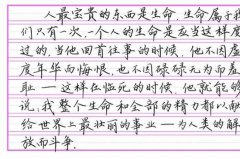 人最宝贵的东西是生命，生命属于我
们只有一次，一个人的生命是应当这样度
过的，当他回首往事的时候，他不因虚
度年华而悔恨，也不因碌碌无为而羞
耻——这样在临死的时候，他就能够
说，我整个生命和全部的精力都以献
给世界上最壮丽的事业——为人类的解
放而斗争。